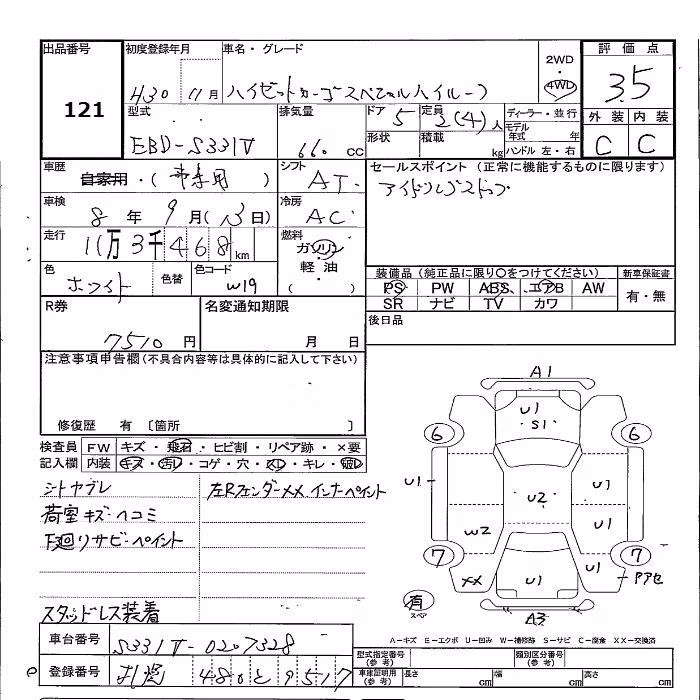 出品番号
121
初度登録年月
H30 11月
車名・グレード
ハイゼットカーゴスペシャルハイルーフ
2WD
・
4WD
評価点
3.5
外装 内装
C C
型式
EBD-S331V
排気量
660 cc
ドア 5
定員 2(4)人
形状
積載 kg
ディーラー・並行
モデル年式 年
ハンドル 左・右
車歴
自家用・(事業用)
シフト
AT
セールスポイント (正常に機能するものに限ります)
アイドリングストップ
車検
8年 9月(13日)
冷房
AC
走行
11万3千468km
燃料
ガソリン
・
軽油
・
色
ホワイト
色替
色コード
W19
装備品(純正品に限り〇をつけてください)
新車保証書
PS PW ABS エアB AW
SR ナビ TV カワ
有・無
R券
7510円
名変通知期限
月 日
後日品
注意事項申告欄(不具合内容等は具体的に記入して下さい)
修復歴 有 〔箇所 〕
検査員記入欄
FW キズ・飛石・ヒビ割・リペア跡・×要
内装 キズ・汚れ・コゲ・穴・スレ・キレ・破レ
シートヤブレ
荷室キズ・ヘコミ
下廻りサビ・ペイント
スタッドレス装着
左Rフェンダー××インナーペイント
A1
U1
S1
6 6
U1 U2 U1
W2 U1
7 7
×× U1 U1 Pアセ
有
スペア
A3
A-キズ E-エクボ U-凹み W-補修跡 S-サビ C-腐食 XX-交換済
車台番号
S331V-0207328
登録番号
札幌 480 と 9517
型式指定番号
(参考)
類別区分番号
(参考)
車庫証明用
(参考)
長さ cm
幅 cm
高さ cm